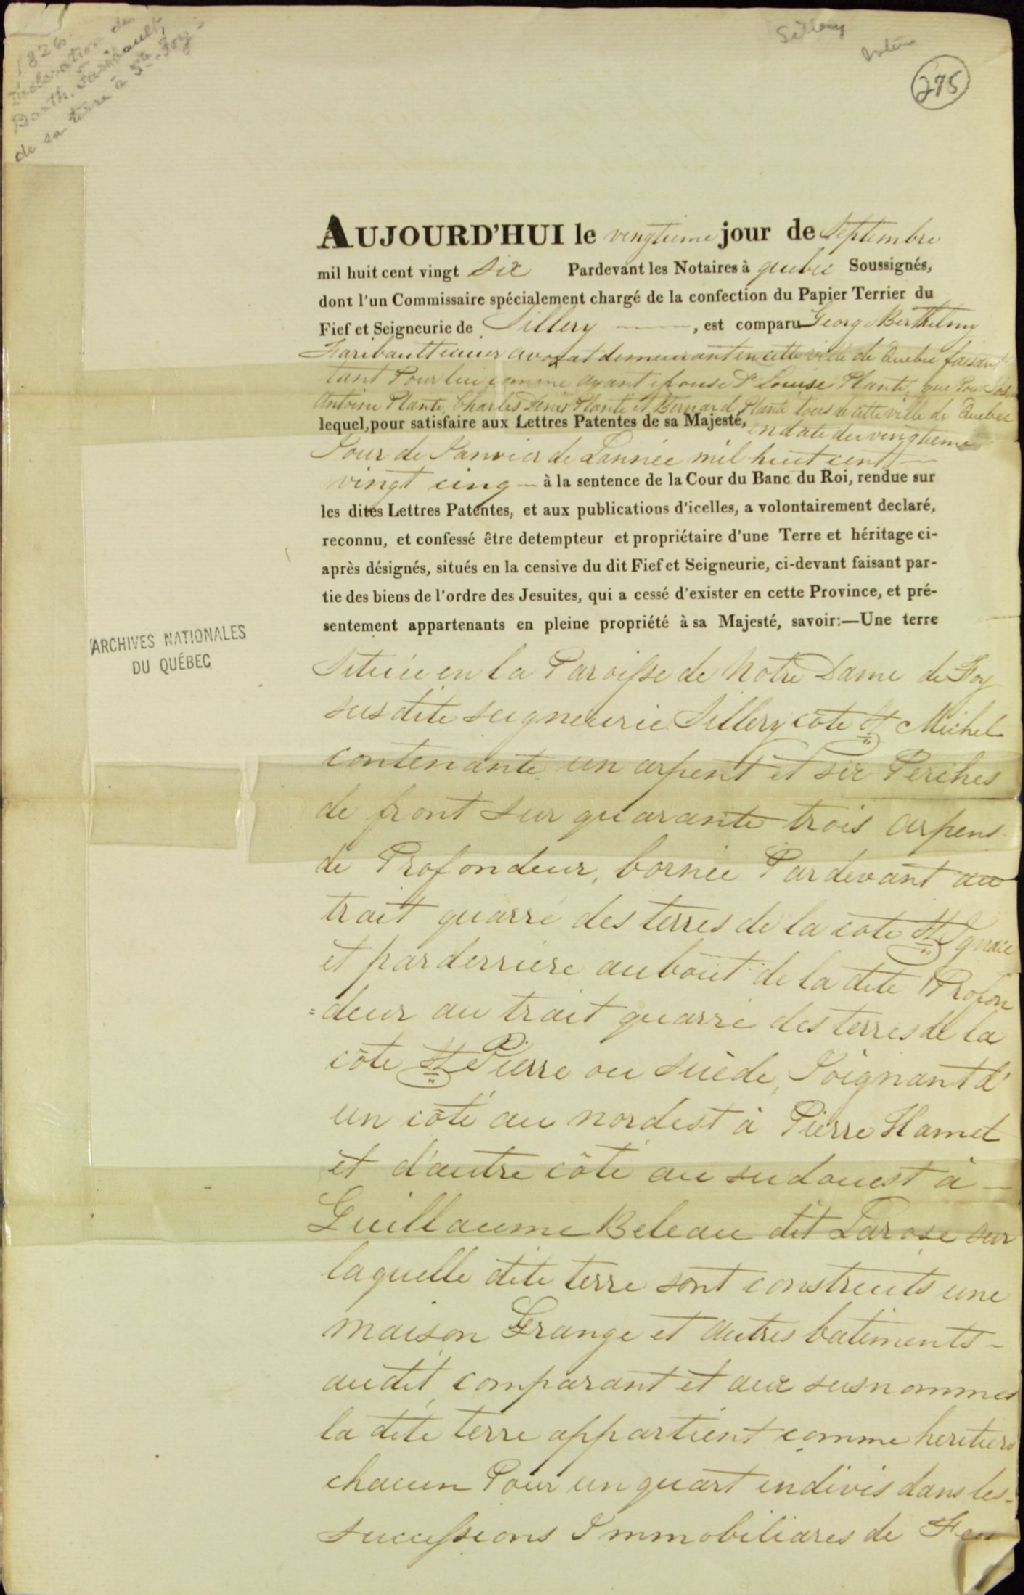 1826
Déclaration de
Barth. Faribault,
de sa terre à Ste Foy
Sillery
275
AUJOURD'HUI le vingtieme jour de Septembre
mil huit cent vingt six Pardevant les Notaires à quebec Soussignés,
dont l'un Commissaire spécialement chargé de la confection du Papier Terrier du
Fief et Seigneurie de Sillery , est comparu George Berthelmy
Faribault ecuier avocat demeurant en cette ville de Quebec faisant
tant Pour lui comme ayant epousé De Louise Planté, que Pour
Antoine Planté, Charles Denis Planté et Bernard Planté tous de cette ville de Quebec
lequel, pour satisfaire aux Lettres Patentes de sa Majesté, en date du vingtieme
Jour de Janvier de L'année mil huit cent
vingt cinq — à la sentence de la Cour du Banc du Roi, rendue sur
les dites Lettres Patentes, et aux publications d'icelles, a volontairement declaré,
reconnu, et confessé être detempteur et propriétaire d'une Terre et héritage ci-
après désignés, situés en la censive du dit Fief et Seigneurie, ci-devant faisant par-
tie des biens de l'ordre des Jesuites, qui a cessé d'exister en cette Province, et pré-
sentement appartenants en pleine propriété à sa Majesté, savoir:—Une terre
ARCHIVES NATIONALES
DU QUÉBEC
Située en la Paroisse de Notre Dame de Foy
susdite seigneurie Sillery cote St Michel
contenante un arpent et six Perches
de front sur quarante trois arpens
de Profondeur, bornée Pardevant au
trait quarré des terres de la cote St Ignace
et par derriere au bout de la dite Profon
=deur au trait quarré des terres de la
côte St Pierre ou suède, Joignant d'
un côté au nordest à Pierre Hamel
et d'autre côté au sudouest à —
Guillaume Beleau dit Larose sur
laquelle dite terre sont construits une
maison Grange et autres batiments —
audit comparant et aux susnommés
la dite terre appartient comme heritiers
chacun Pour un quart indivis dans les
successions Immobiliaires de Feu